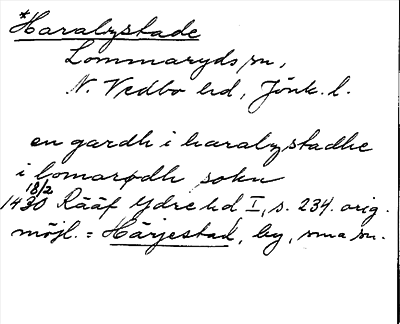 *Haralystade
Lommaryds sn,
N. Vedbo hd, Jönk. l.
en gardh i haralystadhe
i lomarødh sokn
18/2
1430 Rääf Ydre hd I, s. 234. orig.
möjl. = Härjestad, by, sma sn.